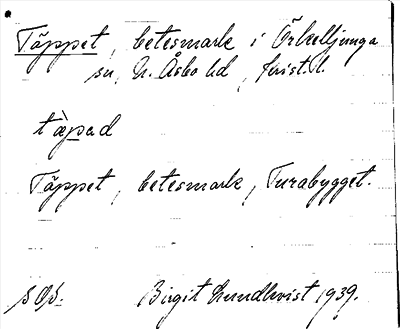 Täppet, betesmark i Örkelljunga
sn, N. Åsbo hd, Krist. l.
tàpad
Täppet, betesmark, Turabygget.
SOS. Birgit Lundkvist 1939.